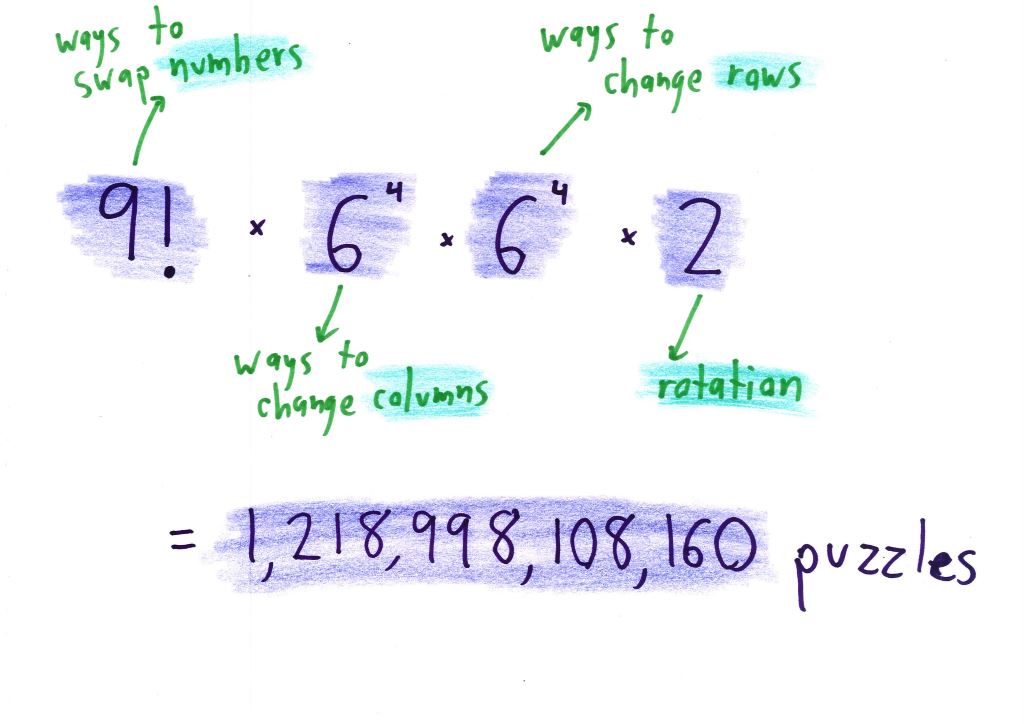 ways to
swap numbers
ways to
change rows
9! × 6⁴ × 6⁴ × 2
ways to
change columns
rotation
= 1,218,998,108,160 puzzles